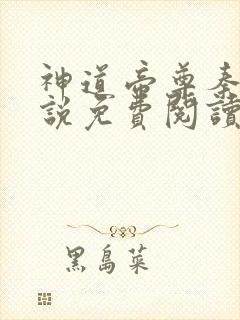 神道帝尊秦
說免費閱讀
黑島菜